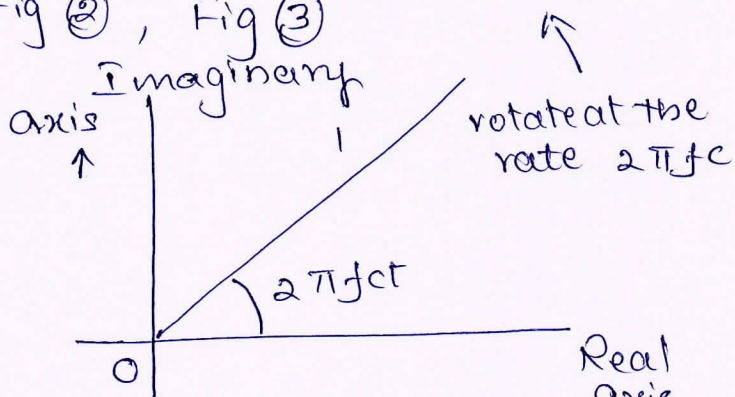 Fig ②, Fig ③
Imaginary
axis ↑
1
rotate at the
rate 2πfc
2πfct
O
Real
axis